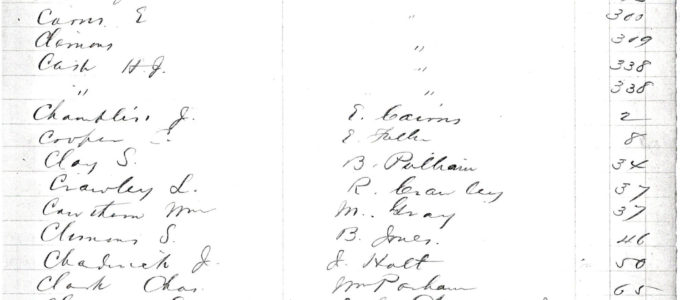 Cairns E " 300
Clemons " 309
Cash H.J. " 338
" " 338
Chambliss J. E. Cairns 2
Cooper E. E. 8
Clay S. B. Pulham 34
Crawley L. R. Crawley 37
Cawthern Wm M. Gray 37
Clemons S. B. Jones. 46
Chadwick J. J. Holt 50
Clark Chas. Wm Parham 65